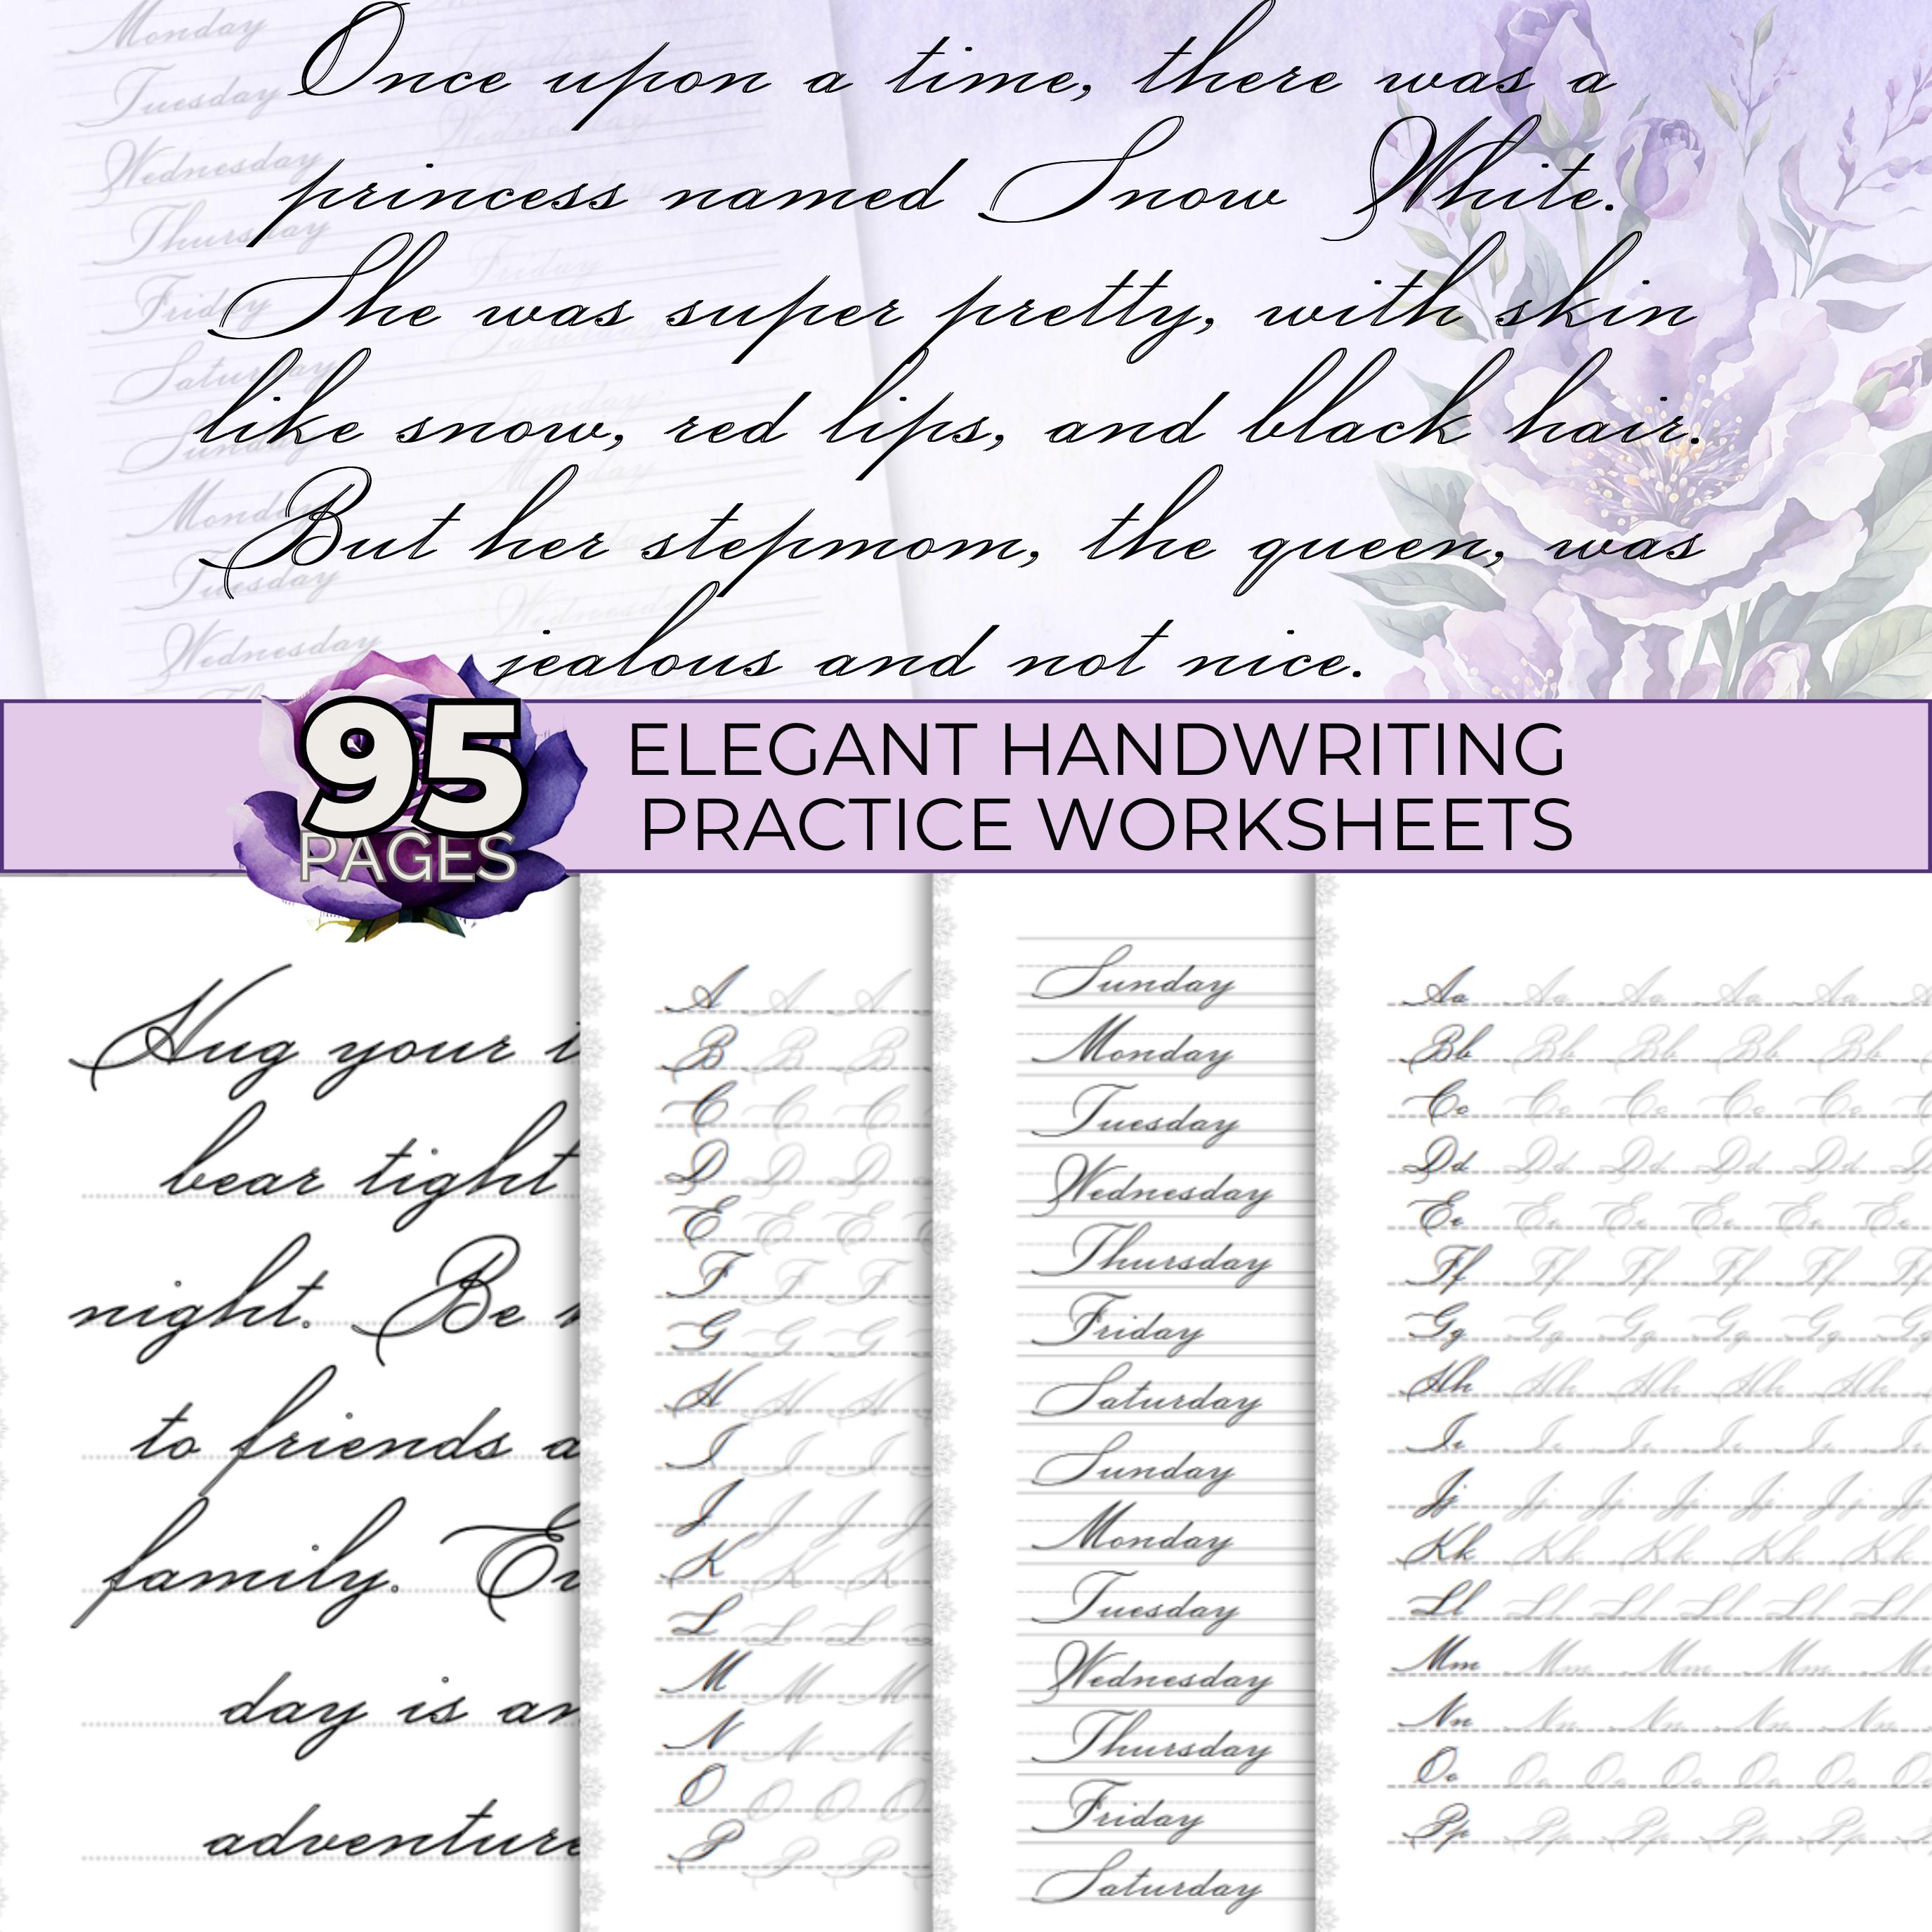 Once upon a time, there was a
princess named Snow White.
She was super pretty, with skin
like snow, red lips, and black hair.
But her stepmom, the queen, was
jealous and not nice.
Monday
Tuesday
Wednesday
Thursday
Friday
Saturday
Sunday
Monday
Tuesday
Wednesday
95
PAGES
ELEGANT HANDWRITING
PRACTICE WORKSHEETS
Hug your
bear tight
night. Be
to friends
family.
day is
adventure
A A A
B B B
C C C
D D D
E E E E
F F F
G G G
H H H
I I I
J J J J
K K K
L L L L
M M M
N N N
O O O O
P P P
Sunday
Monday
Tuesday
Wednesday
Thursday
Friday
Saturday
Sunday
Monday
Tuesday
Wednesday
Thursday
Friday
Saturday
Aa Aa Aa Aa Aa
Bb Bb Bb Bb Bb
Cc Cc Cc Cc Cc
Dd Dd Dd Dd Dd
Ee Ee Ee Ee Ee Ee
Ff Ff Ff Ff Ff
Gg Gg Gg Gg Gg
Hh Hh Hh Hh Hh
Ii Ii Ii Ii Ii
Jj Jj Jj Jj Jj Jj
Kk Kk Kk Kk Kk
Ll Ll Ll Ll Ll Ll
Mm Mm Mm Mm Mm
Nn Nn Nn Nn Nn
Oo Oo Oo Oo Oo Oo
Pp Pp Pp Pp Pp